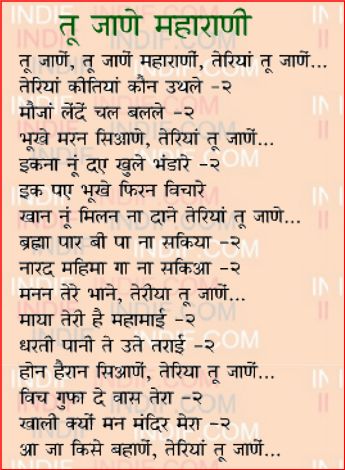 तू जाणे महाराणी
तू जाणें, तू जाणें महाराणीं, तेरियां तू जाणें...
तेरियां कीतियां कौन उथले -२
मौजां लेंदें चल बलले -२
भूखे मरन सिआणे, तेरियां तू जाणें...
इकना नूं दए खुले भंडारे -२
इक पए भूखे फिरन विचारे
खान नूं मिलन ना दाने तेरियां तू जाणे...
ब्रह्मा पार बी पा ना सकिया -२
नारद महिमा गा ना सकिआ -२
मनन तेरे भाने, तेरीया तू जाणें...
माया तेरी है महामाई -२
धरती पानी ते उते तराई -२
होन हैरान सिआणें, तेरिया तू जाणें...
विच गुफा दे वास तेरा -२
खाली क्यों मन मंदिर मेरा -२
आ जा किसे बहाणें, तेरियां तू जाणें...
INDIF.COM